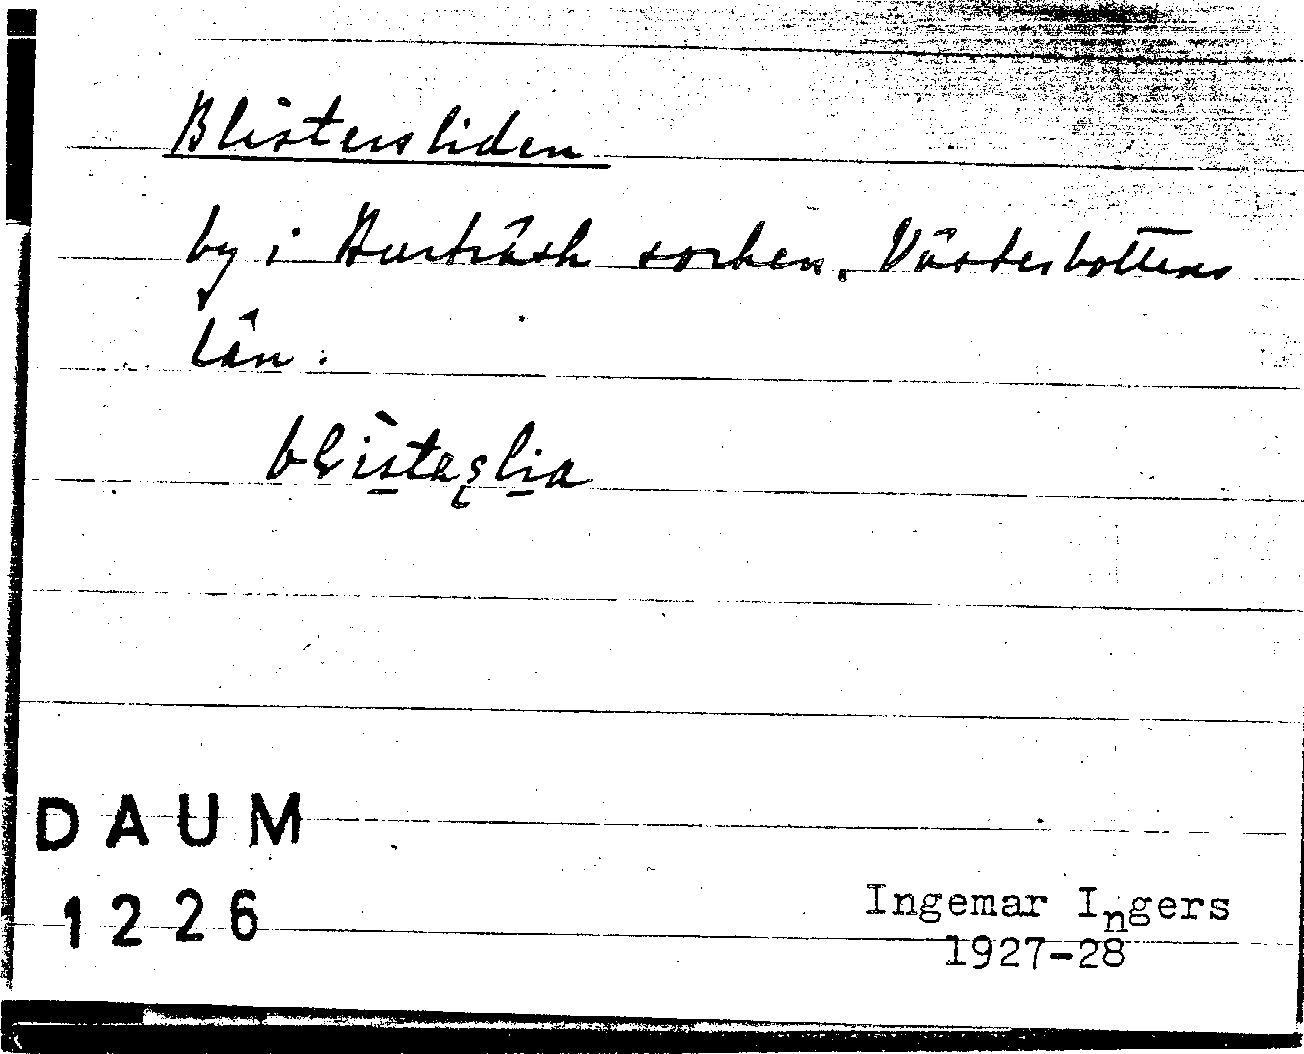 Blistersliden
by i Burträsk socken, Västerbottens
län.
DAUM
1226
Ingemar Ingers
1927-28